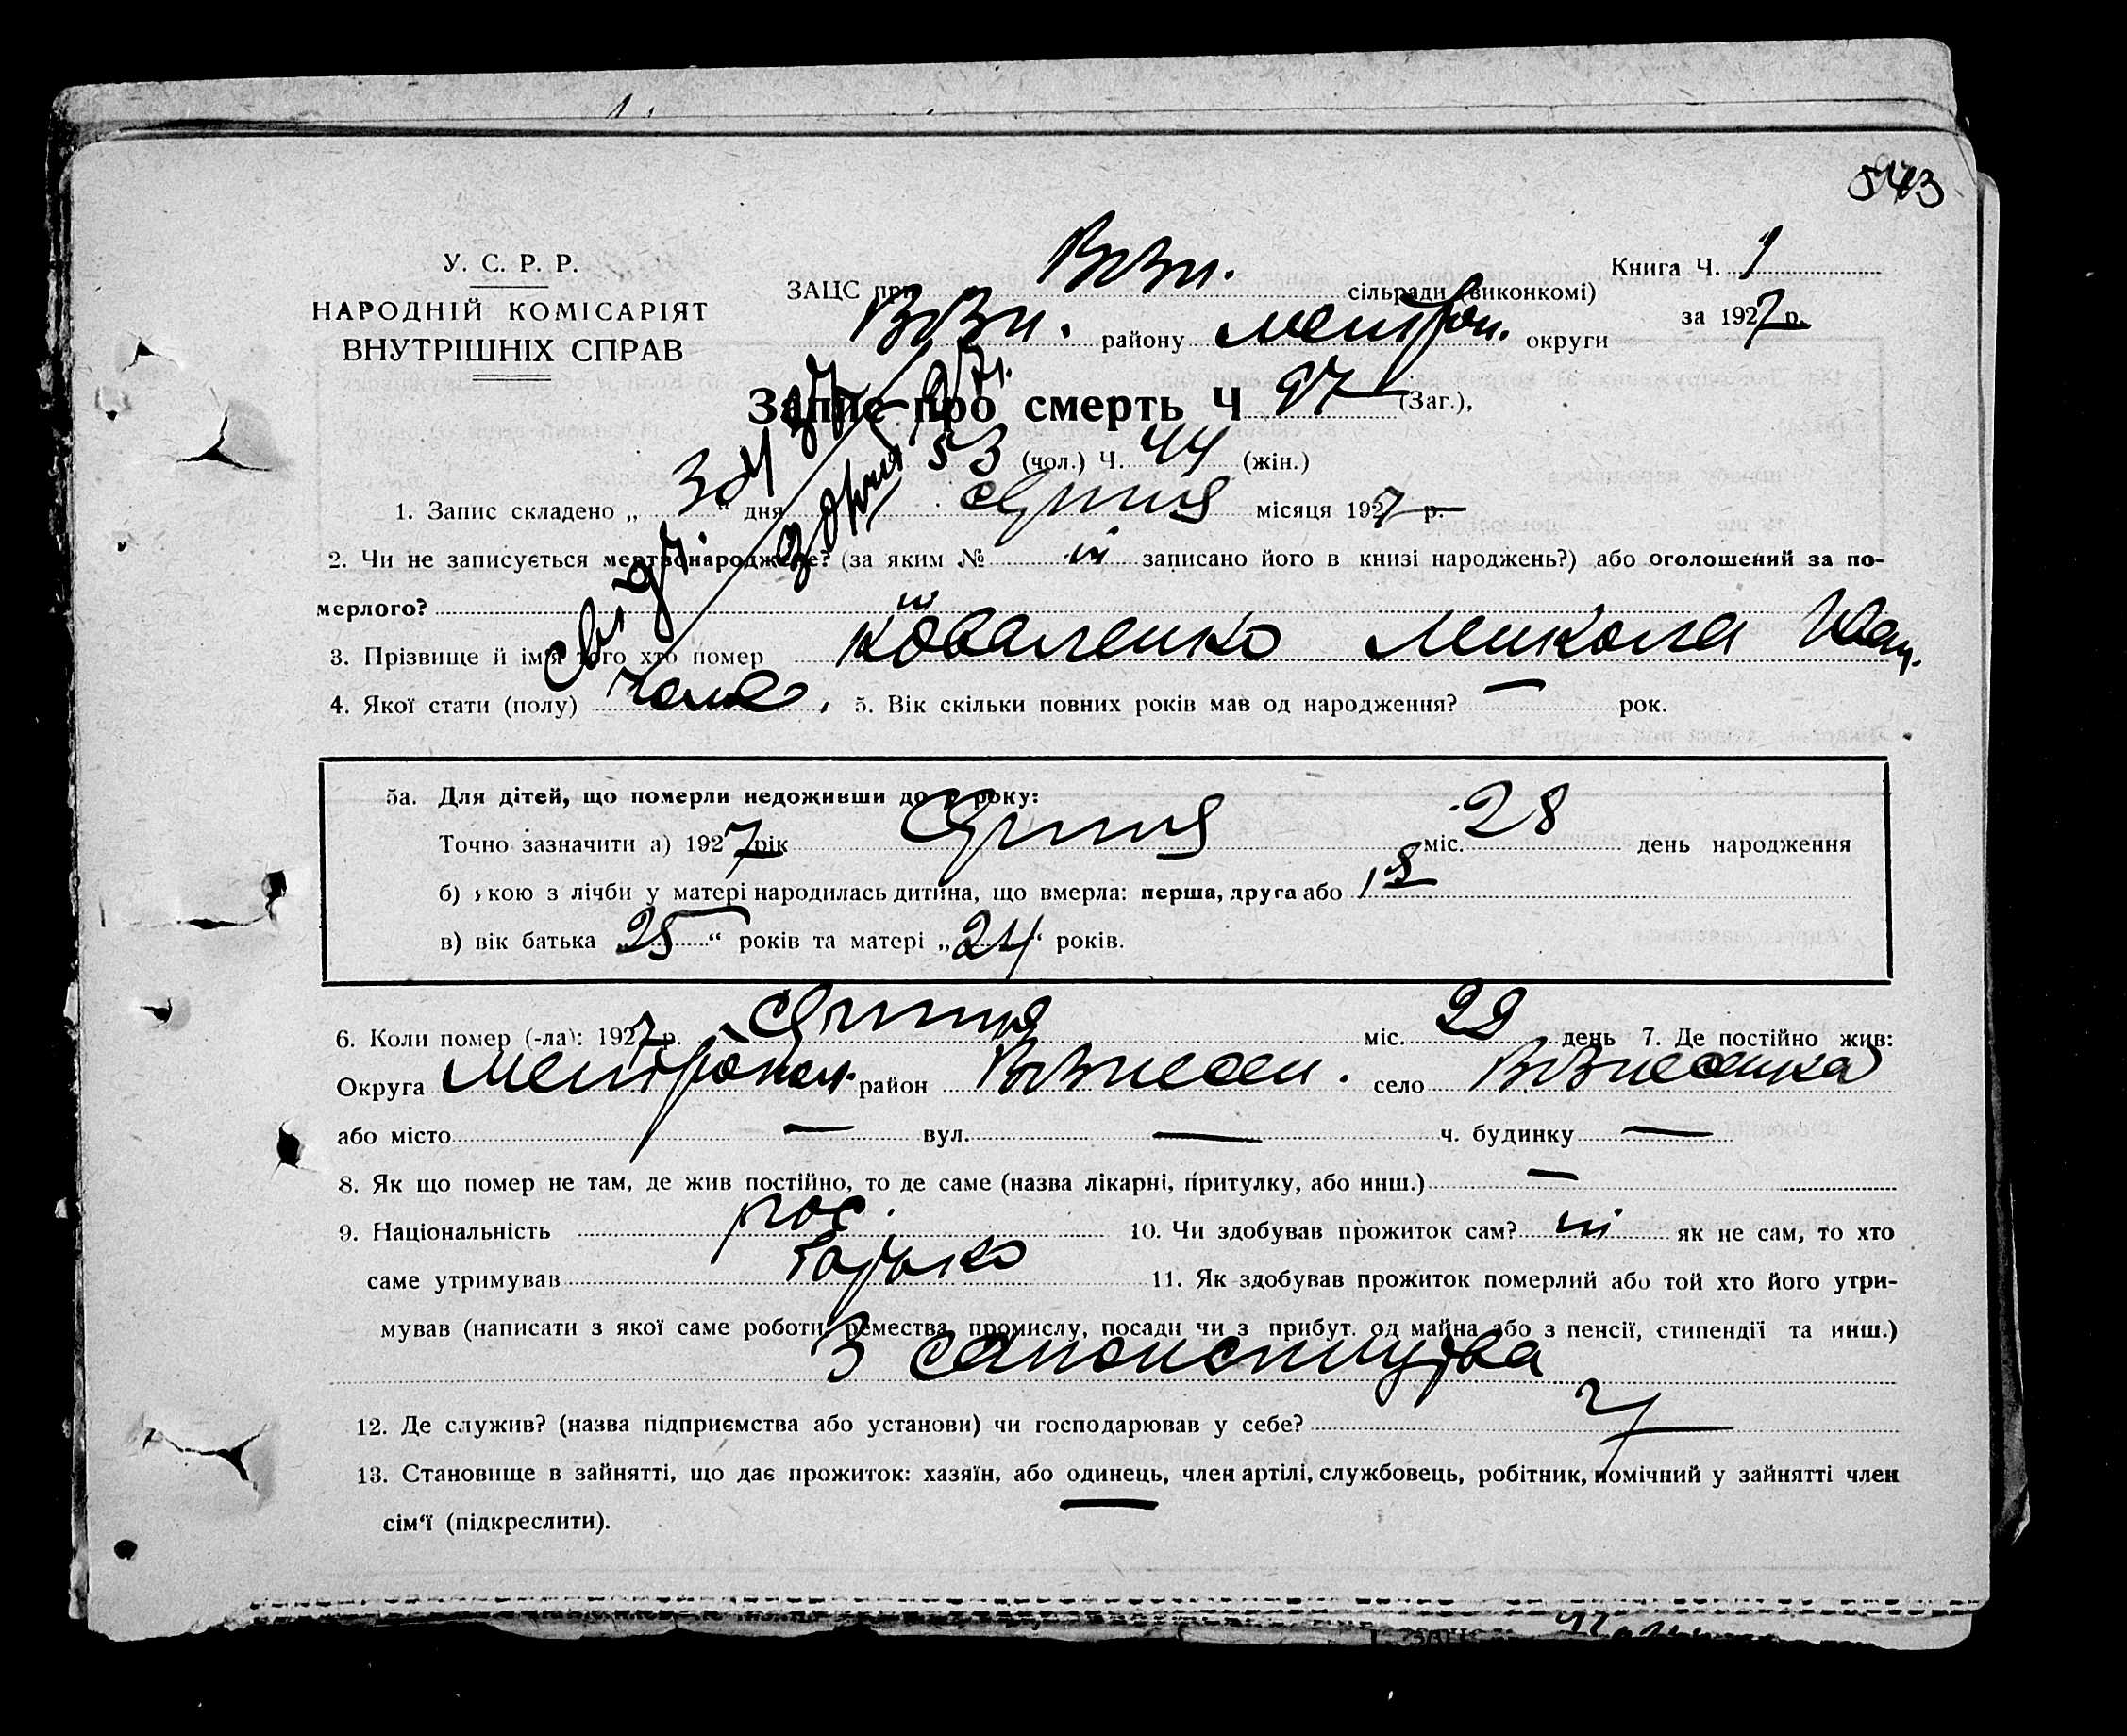 543
У. С. Р. Р.
НАРОДНІЙ КОМІСАРІЯТ
ВНУТРІШНІХ СПРАВ
ЗАЦС при Возн. сільради (виконкомі)
Возн. району Мелітоп. округи
Книга Ч. 1
за 1927 р.
Запис про смерть Ч 97 (Заг.),
53 (чол.) Ч. 44 (жін.)
1. Запис складено „ “ дня серпня місяця 1927 р.
2. Чи не записується мертвонароджене? (за яким № ні записано його в книзі народжень?) або оголошений за по-
мерлого? ні
3. Прізвище й ім'я того хто помер Коваленко Микола Іван.
4. Якої стати (полу) чолов , 5. Вік скільки повних років мав од народження? — рок.
5а. Для дітей, що померли недоживши до року:
Точно зазначити а) 1927 рік Серпня міс. 28 день народження
б) якою з лічби у матері народилась дитина, що вмерла: перша, друга або
в) вік батька „25“ років та матері „24“ років.
6. Коли помер (-ла): 1927 р. Серпня міс. 29 день 7. Де постійно жив:
Округа Мелітопол. район Вознесен. село Вознесенка
або місто — вул. — ч. будинку —
8. Як що помер не там, де жив постійно, то де саме (назва лікарні, притулку, або инш.) —
9. Національність рос. 10. Чи здобував прожиток сам? ні як не сам, то хто
саме утримував батько 11. Як здобував прожиток померлий або той хто його утри-
мував (написати з якої саме роботи, ремества, промислу, посади чи з прибут. од майна або з пенсії, стипендії та инш.)
З
12. Де служив? (назва підприємства або установи) чи господарював у себе?
13. Становище в зайнятті, що дає прожиток: хазяїн, або одинець, член артілі, службовець, робітник, помічний у зайнятті член
сім'ї (підкреслити).